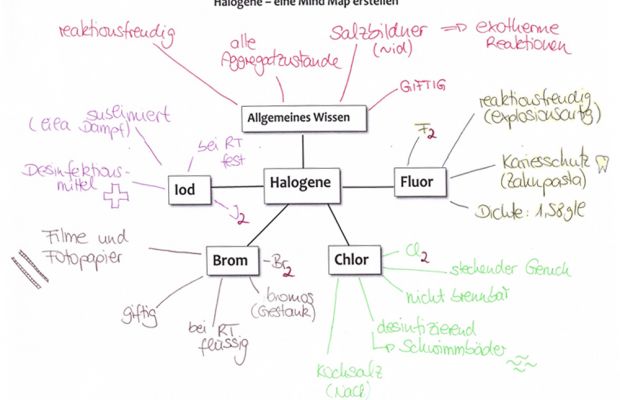 Halogene – eine Mind Map erstellen
reaktionsfreudig
alle
Aggregatzustände
Salzbildner
(NaCl)
⇒ exotherme
Reaktionen
GIFTIG
Allgemeines Wissen
sublimiert
(lila Dampf)
bei RT
fest
Desinfektions-
mittel
Iod
J2
Halogene
Fluor
F2
reaktionsfreudig
(explosionsartig)
Kariesschutz
(Zahnpasta)
Dichte: 1,58g/e
Filme und
Fotopapier
giftig
bei RT
flüssig
bromos
(Gestank)
Brom
Br2
Chlor
Cl2
stechender Geruch
nicht brennbar
desinfizierend
↳ Schwimmbäder
Kochsalz
(NaCl)